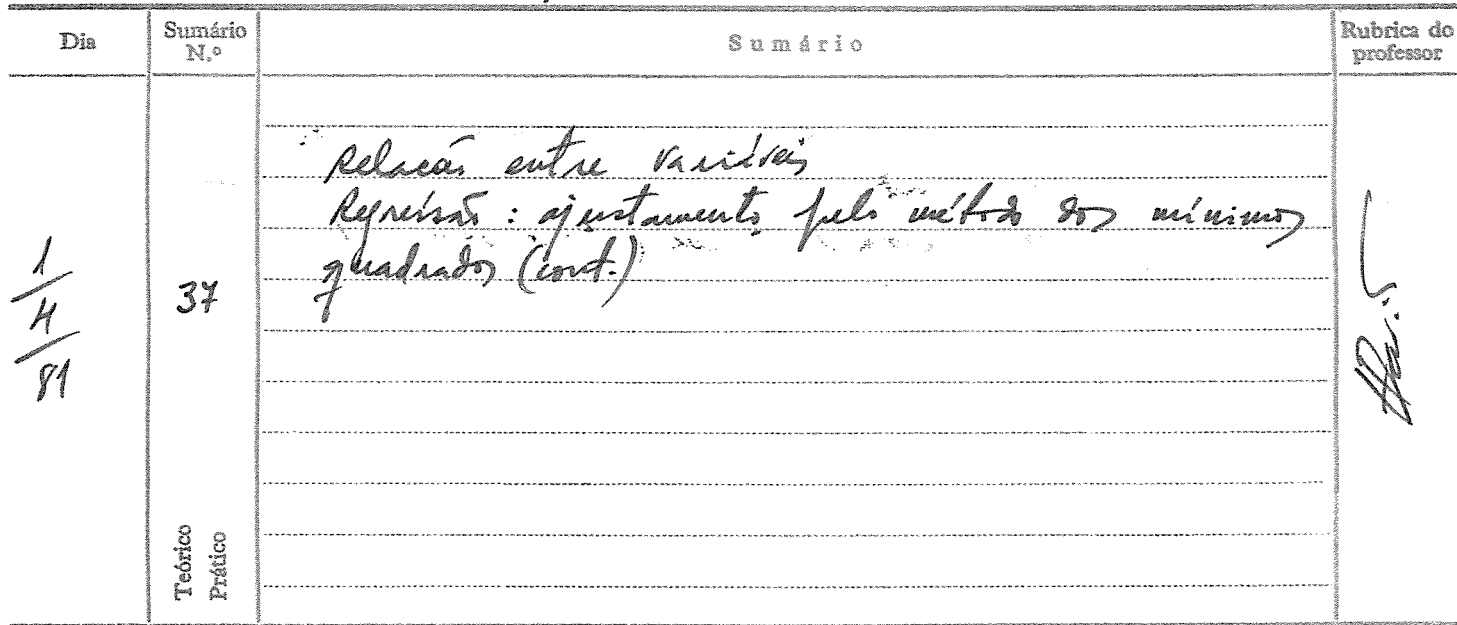 Dia
Sumário N.º
Sumário
Rubrica do professor
1/4/81
37
Teórico
Prático
Relação entre variáveis
Regressão: ajustamento pelo método dos mínimos
quadrados (cont.)